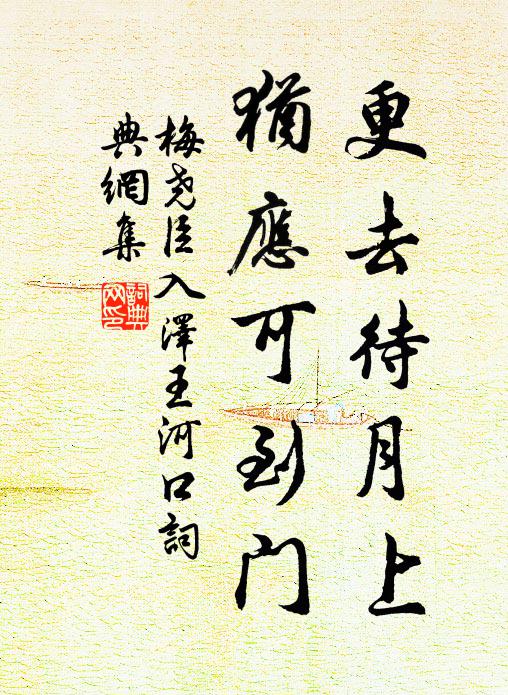 更去待月上
猶應可到門
梅堯臣入澤王河口詞
典網集
詞典網印